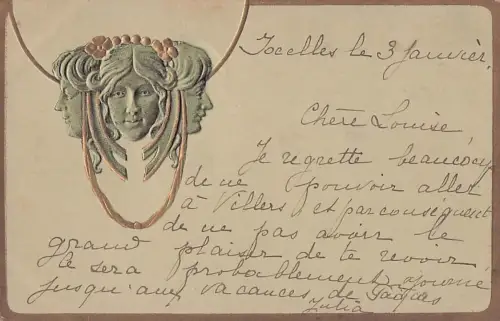 Ixelles le 3 Janvier,
Chère Louise,
Je regrette beaucoup
de ne pouvoir aller
à Villers et par conséquent
de ne pas avoir le
grand plaisir de te revoir
ce sera probablement ajourné
jusqu'aux vacances de Pâques
Julia